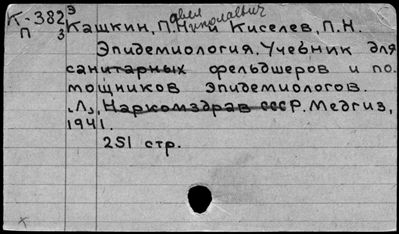 К-382
П 3
авел Николаевич
Кашкин, П.Н. и Киселев, П.Н.
Эпидемиология. Учебник для
санитарных фельдшеров и по-
мощников эпидемиологов.
Л., Наркомздрав СССР. Медгиз,
1941.
251 стр.